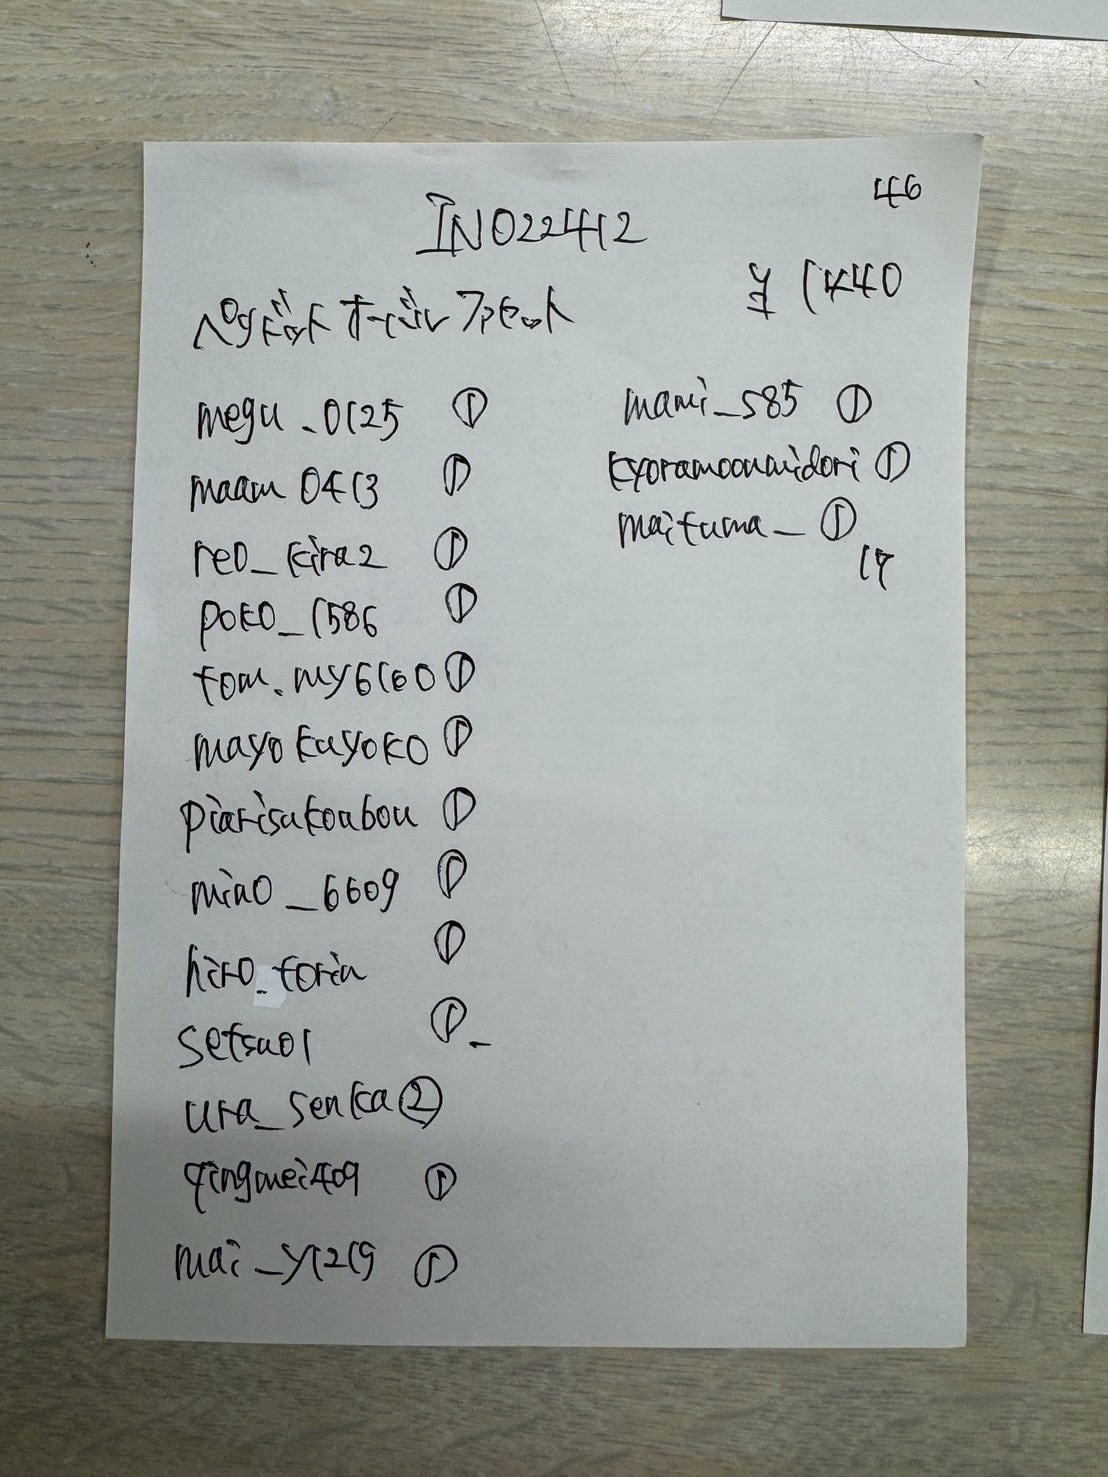 46
INO22412
¥ 1440
ペリドット オーバル ファセット
megu_0125 ①
maam 0413 ①
reo_kira2 ①
poko_1586 ①
tom.my6160 ①
mayokayoko ①
piarisukoubou ①
mino_6609 ①
hiro_torin ①
setsu01 ①
ura_senka ②
qingmei409 ①
mai_y1219 ①
mami_585 ①
kyoramoonmidori ①
maituma_ ①
17